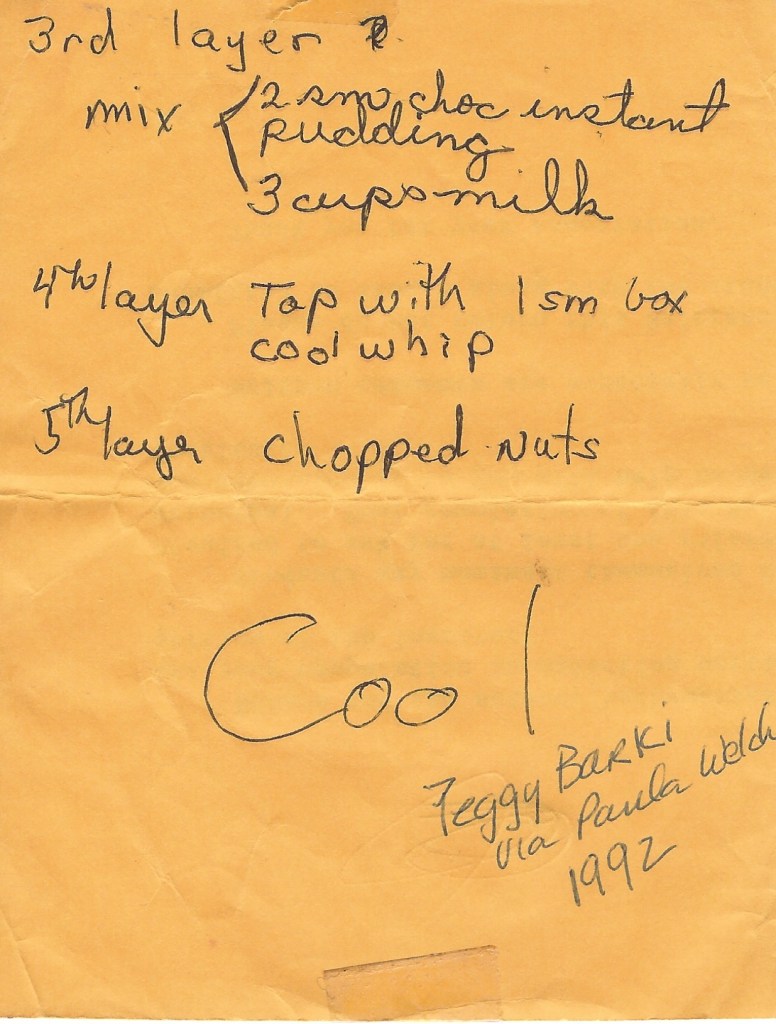 3rd layer
mix 2 sm choc instant
pudding
3 cups milk
4th layer Top with 1 sm box
cool whip
5th layer chopped nuts
Cool
Peggy Barki
via Paula Welch
1992